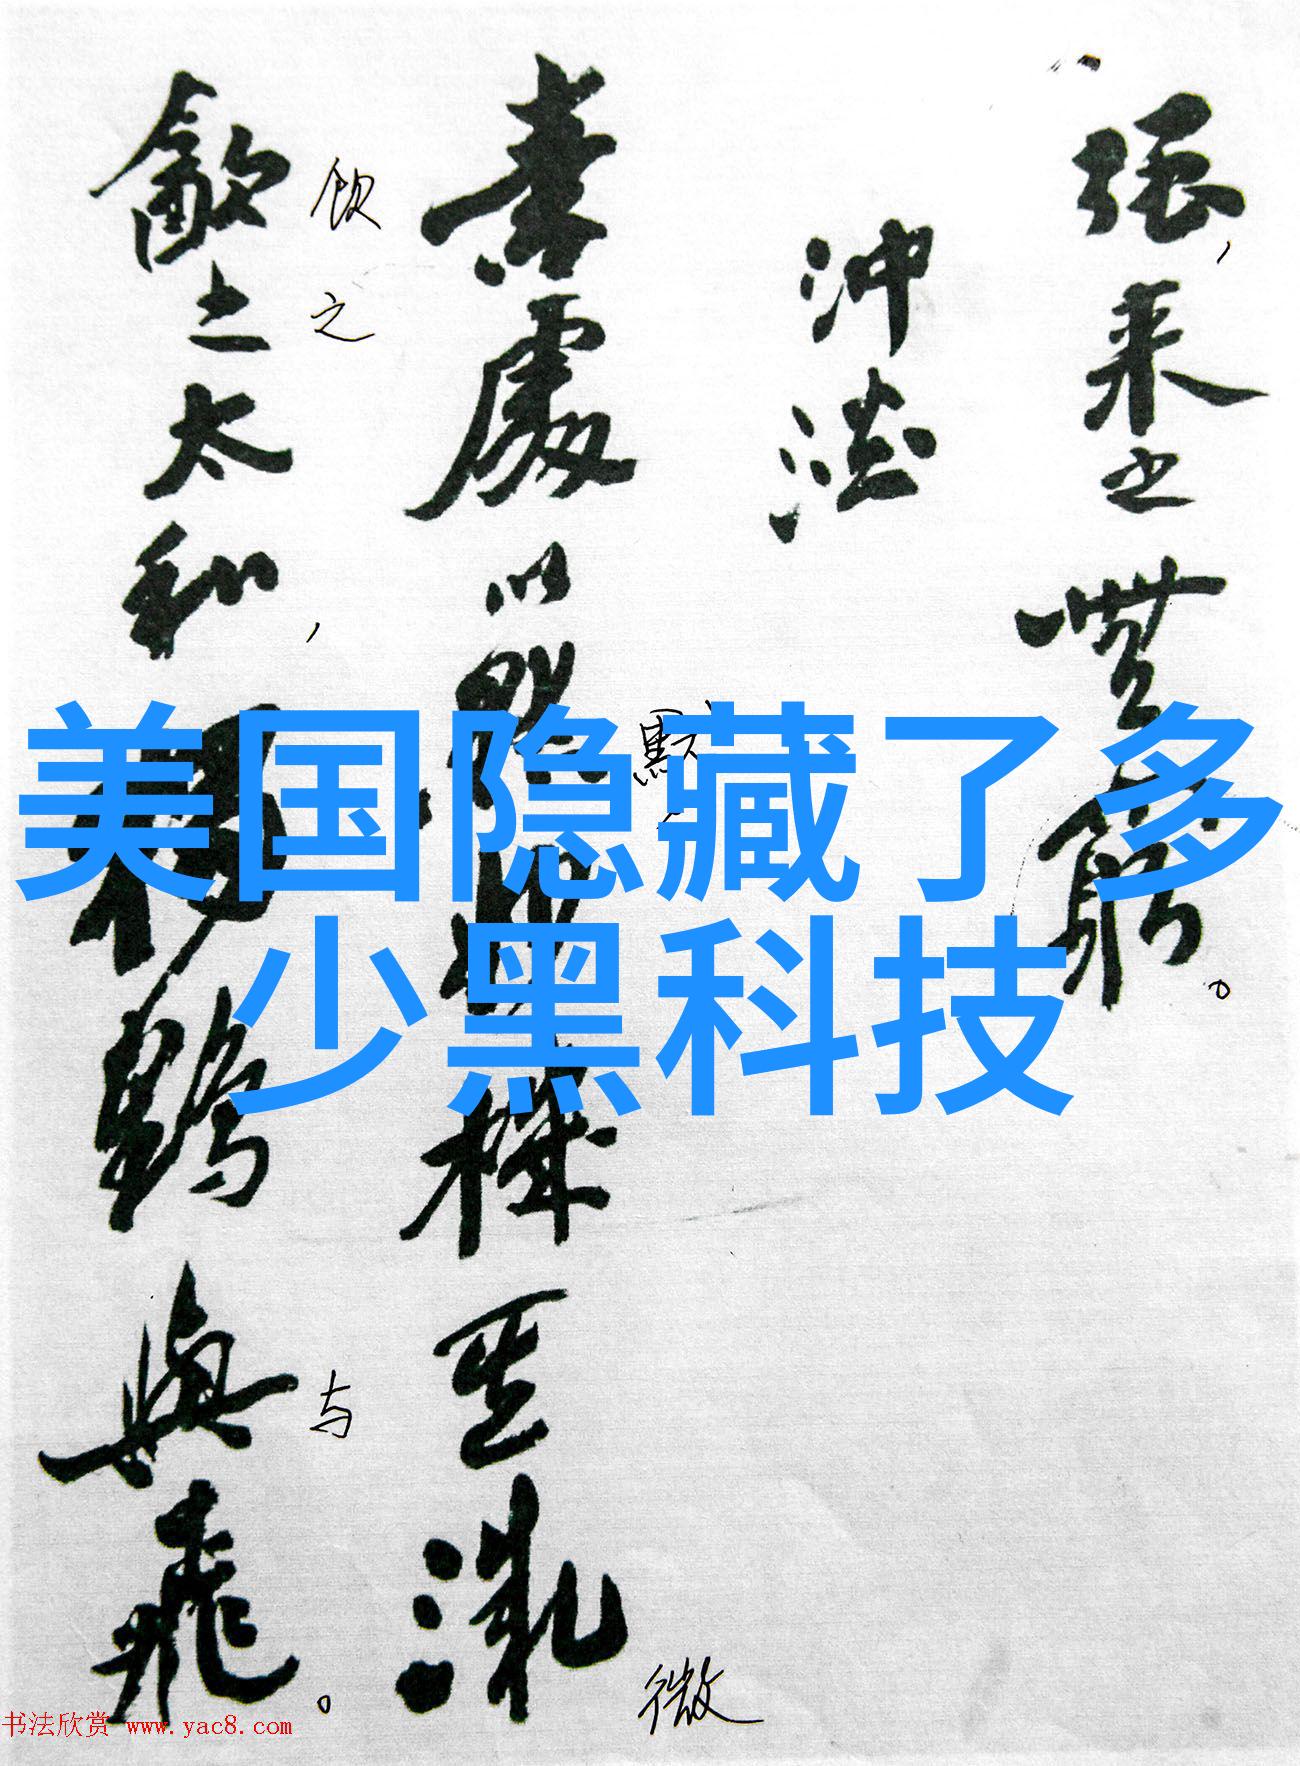 美国隐藏了多
少黑科技
强，来之無窮。
沖淡
默
微
素處以默妙機其微
饮之
与
飲之太和，獨鶴與飛。
书法欣赏 www.yac8.com